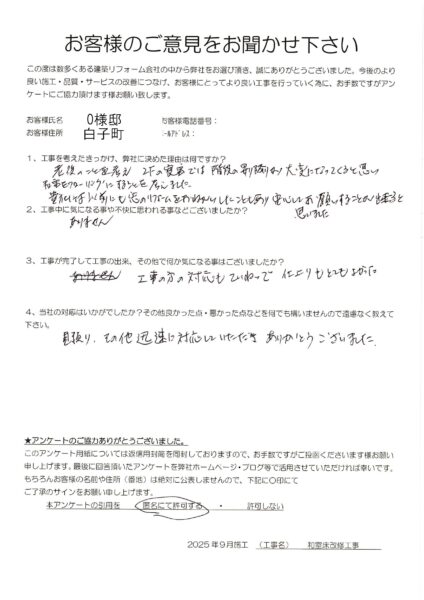 お客様のご意見をお聞かせ下さい
この度は数多くある建築リフォーム会社の中から弊社をお選び頂き、誠にありがとうございました。今後のより
良い施工・品質・サービスの改善につなげ、お客様にとってより良い工事を行っていく為に、お手数ですがアン
ケートにご協力頂けます様お願い致します。
お客様氏名 O様邸 お客様電話番号：
お客様住所 白子町 メールアドレス：
1、工事を考えたきっかけ、弊社に決めた理由は何ですか？
老後のことを考え 2Fの寝室では 階段の昇り降りが大変になってくると思い
和室をフローリングにすることを考えました。
以前にも窓のリフォームをおねがいしたこともあり 安心してお願いすることが出来ると
思いました
2、工事中に気になる事や不快に思われる事などございましたか？
ありません
3、工事が完了して工事の出来、その他で何か気になる事はございましたか？
ありません 工事の方の対応もていねいで 仕上りもとてもよかった
4、当社の対応はいかがでしたか？その他良かった点・悪かった点などを何でも構いませんので遠慮なく教えて
下さい。
見積り、その他 迅速に対応していただき ありがとうございました。
★アンケートのご協力ありがとうございました。
このアンケート用紙については返信用封筒を同封しておりますので、お手数ですがご投函くださいます様お願い
申し上げます。最後に回答頂いたアンケートを弊社ホームページ・ブログ等で活用させていただければ幸いです。
もちろんお客様の名前や住所（番地）は絶対に公表しませんので、下記に〇印にて
ご了承のサインをお願い申し上げます。
本アンケートの引用を 匿名にて許可する ・ 許可しない
2025年9月施工 （工事名） 和室床改修工事